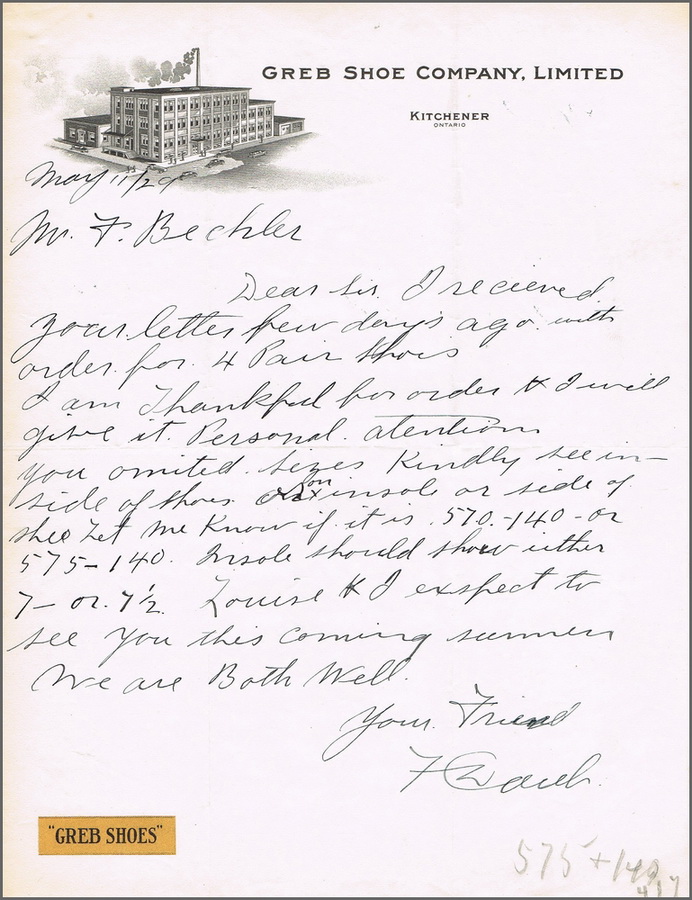 GREB SHOE COMPANY, LIMITED
KITCHENER
ONTARIO
May 11/29
Mr. F. Bechler
Dear Sir. I recieved
your letter few days ago with
order for 4 Pair Shois
I am Thankful for order & I will
give it. Personal. atention
you omited. Sizes Kindly see in-
side of shoes on insole or side of
shoe Let me Know if it is .570.-140-or
575-140. Insole should show either
7- or. 7½. Louise & I exspect to
see you this coming summer
We are Both Well.
Your. Friend
F
"GREB SHOES"
575+140